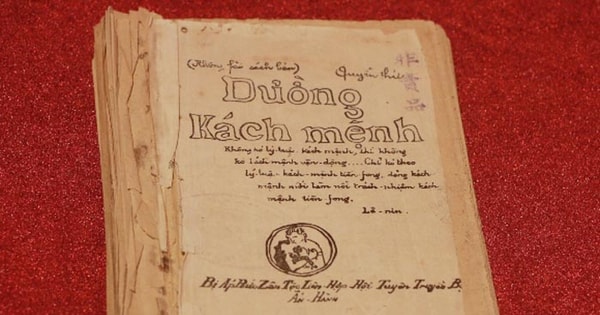 (Không fải sách bán) Quyển
Dường
Kách mệnh
Không kó lý-luận kách mệnh, thì không
kó kách mệnh vận-động.... Chỉ kó theo
lý-luận-kách-mệnh tiền-fong, đảng kách
mệnh mới làm nổi trách-nhiệm kách
mệnh tiền-fong.
Lê-nin.
Bị Áp Bức Zân Tộc Liên Hợp Hội Tuyên Truyền Bộ
Ấn-Hành